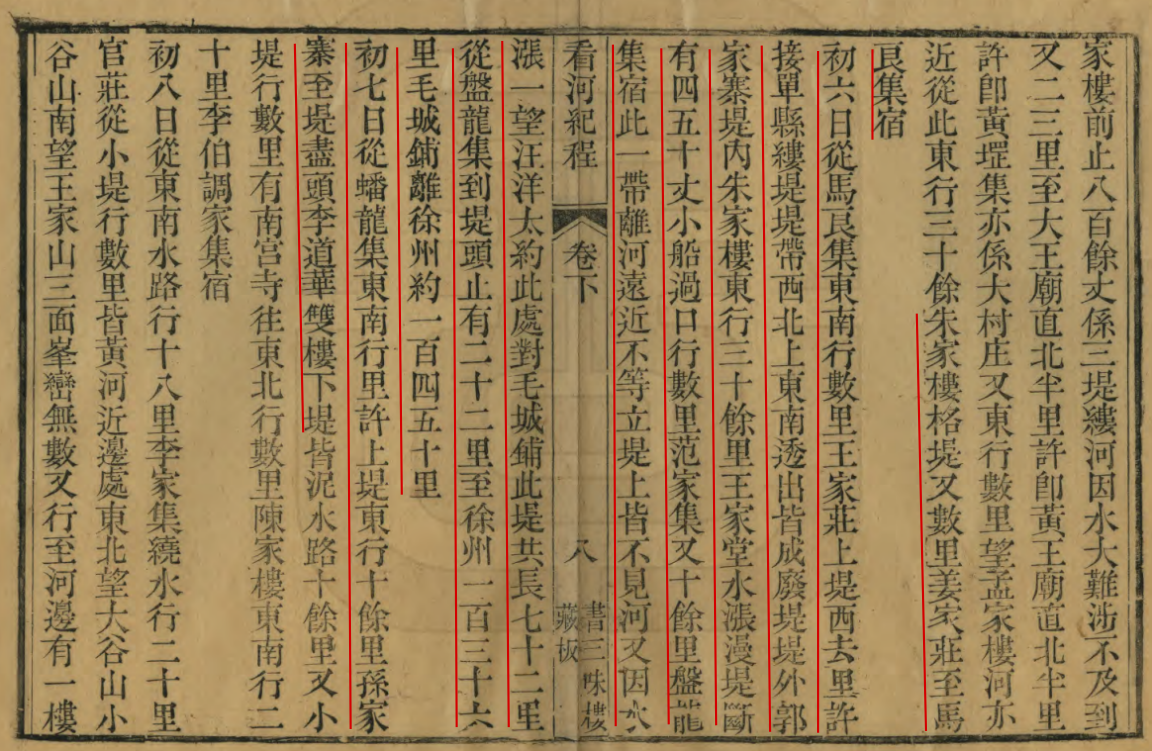 家樓前止八百餘丈係三堤縷河因水大難涉不及到
又二三里至大王廟直北半里許卽黃王廟直北半里
許卽黃堽集亦係大村庄又東行數里望孟家樓河亦
近從此東行三十餘朱家樓格堤又數里姜家莊至馬
良集宿
初六日從馬良集東南行數里王家莊上堤西去里許
接單縣縷堤堤帶西北上東南透出皆成廢堤堤外郭
家寨堤內朱家樓東行三十餘里王家堂水漲漫堤斷
有四五十丈小船過口行數里范家集又十餘里盤龍
集宿此一帶離河遠近不等立堤上皆不見河又因水
看河紀程
卷下
八
書三味樓
藏板
漲一望汪洋太約此處對毛城鋪此堤共長七十二里
從盤龍集到堤頭止有二十二里至徐州一百三十六
里毛城鋪離徐州約一百四五十里
初七日從蟠龍集東南行里許上堤東行十餘里孫家
寨至堤盡頭李道華雙樓下堤皆泥水路十餘里又小
堤行數里有南宮寺往東北行數里陳家樓東南行二
十里李伯調家集宿
初八日從東南水路行十八里李家集繞水行二十里
官莊從小堤行數里皆黃河近邊處東北望大谷山小
谷山南望王家山三面峯巒無數又行至河邊有一樓